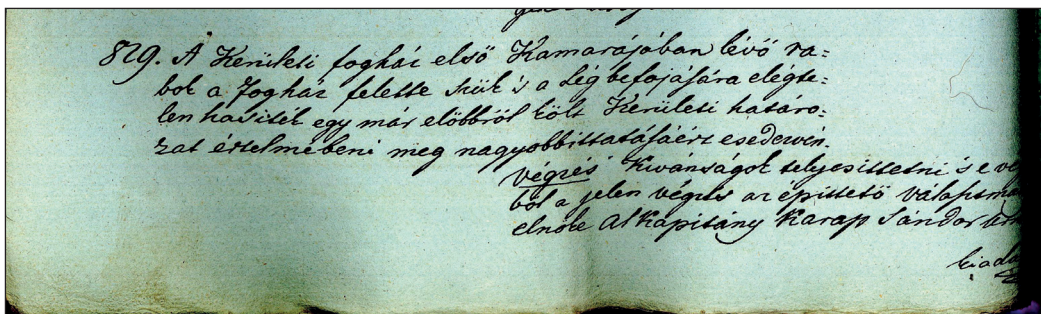 829. A Kerületi fogház első Kamarájában lévő ra=
bok a fogház felette szük 's a Lég befojására elégte=
len hasiték egy már előbbről költ Kerületi határo=
zat értelmébeni meg nagyobbittatásáért esedezvén.
Végzés Kivánságok telyesittetni 's e vé
ből a jelen végzés az épittető választmá
elnöke AlKapitány Karap Sándor
kiado